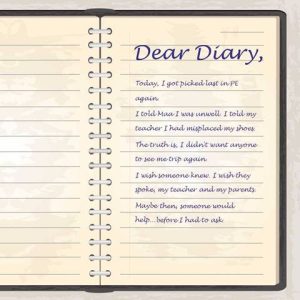 Dear Diary,
Today, I got picked last in PE
again.
I told Maa I was unwell. I told my
teacher I had misplaced my shoes.
The truth is, I didn't want anyone
to see me trip again.
I wish someone knew. I wish they
spoke, my teacher and my parents.
Maybe then, someone would
help...before I had to ask.